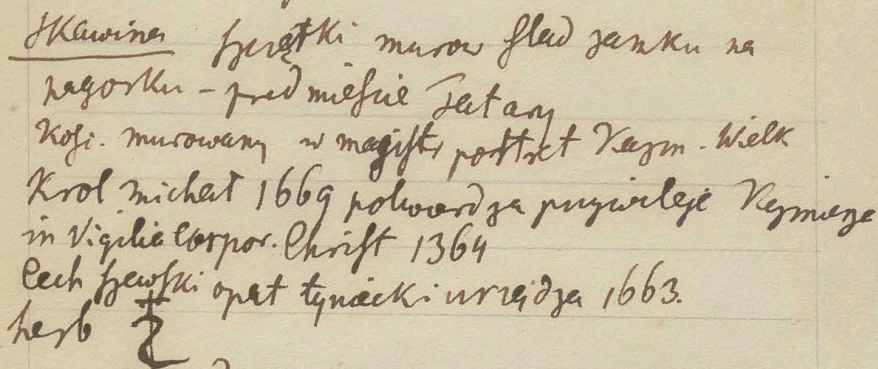 Skawina szczątki murow ślad zamku na
pagorku – przedmieście Tatary
Kośc. murowany w magistr portret Kazm. Wielk
Krol Michał 1669 potwierdza przywileje Kazmierza
in Vigilia Corpor. Christ 1364
Cech szewski opat tyniecki urządza 1663.
herb